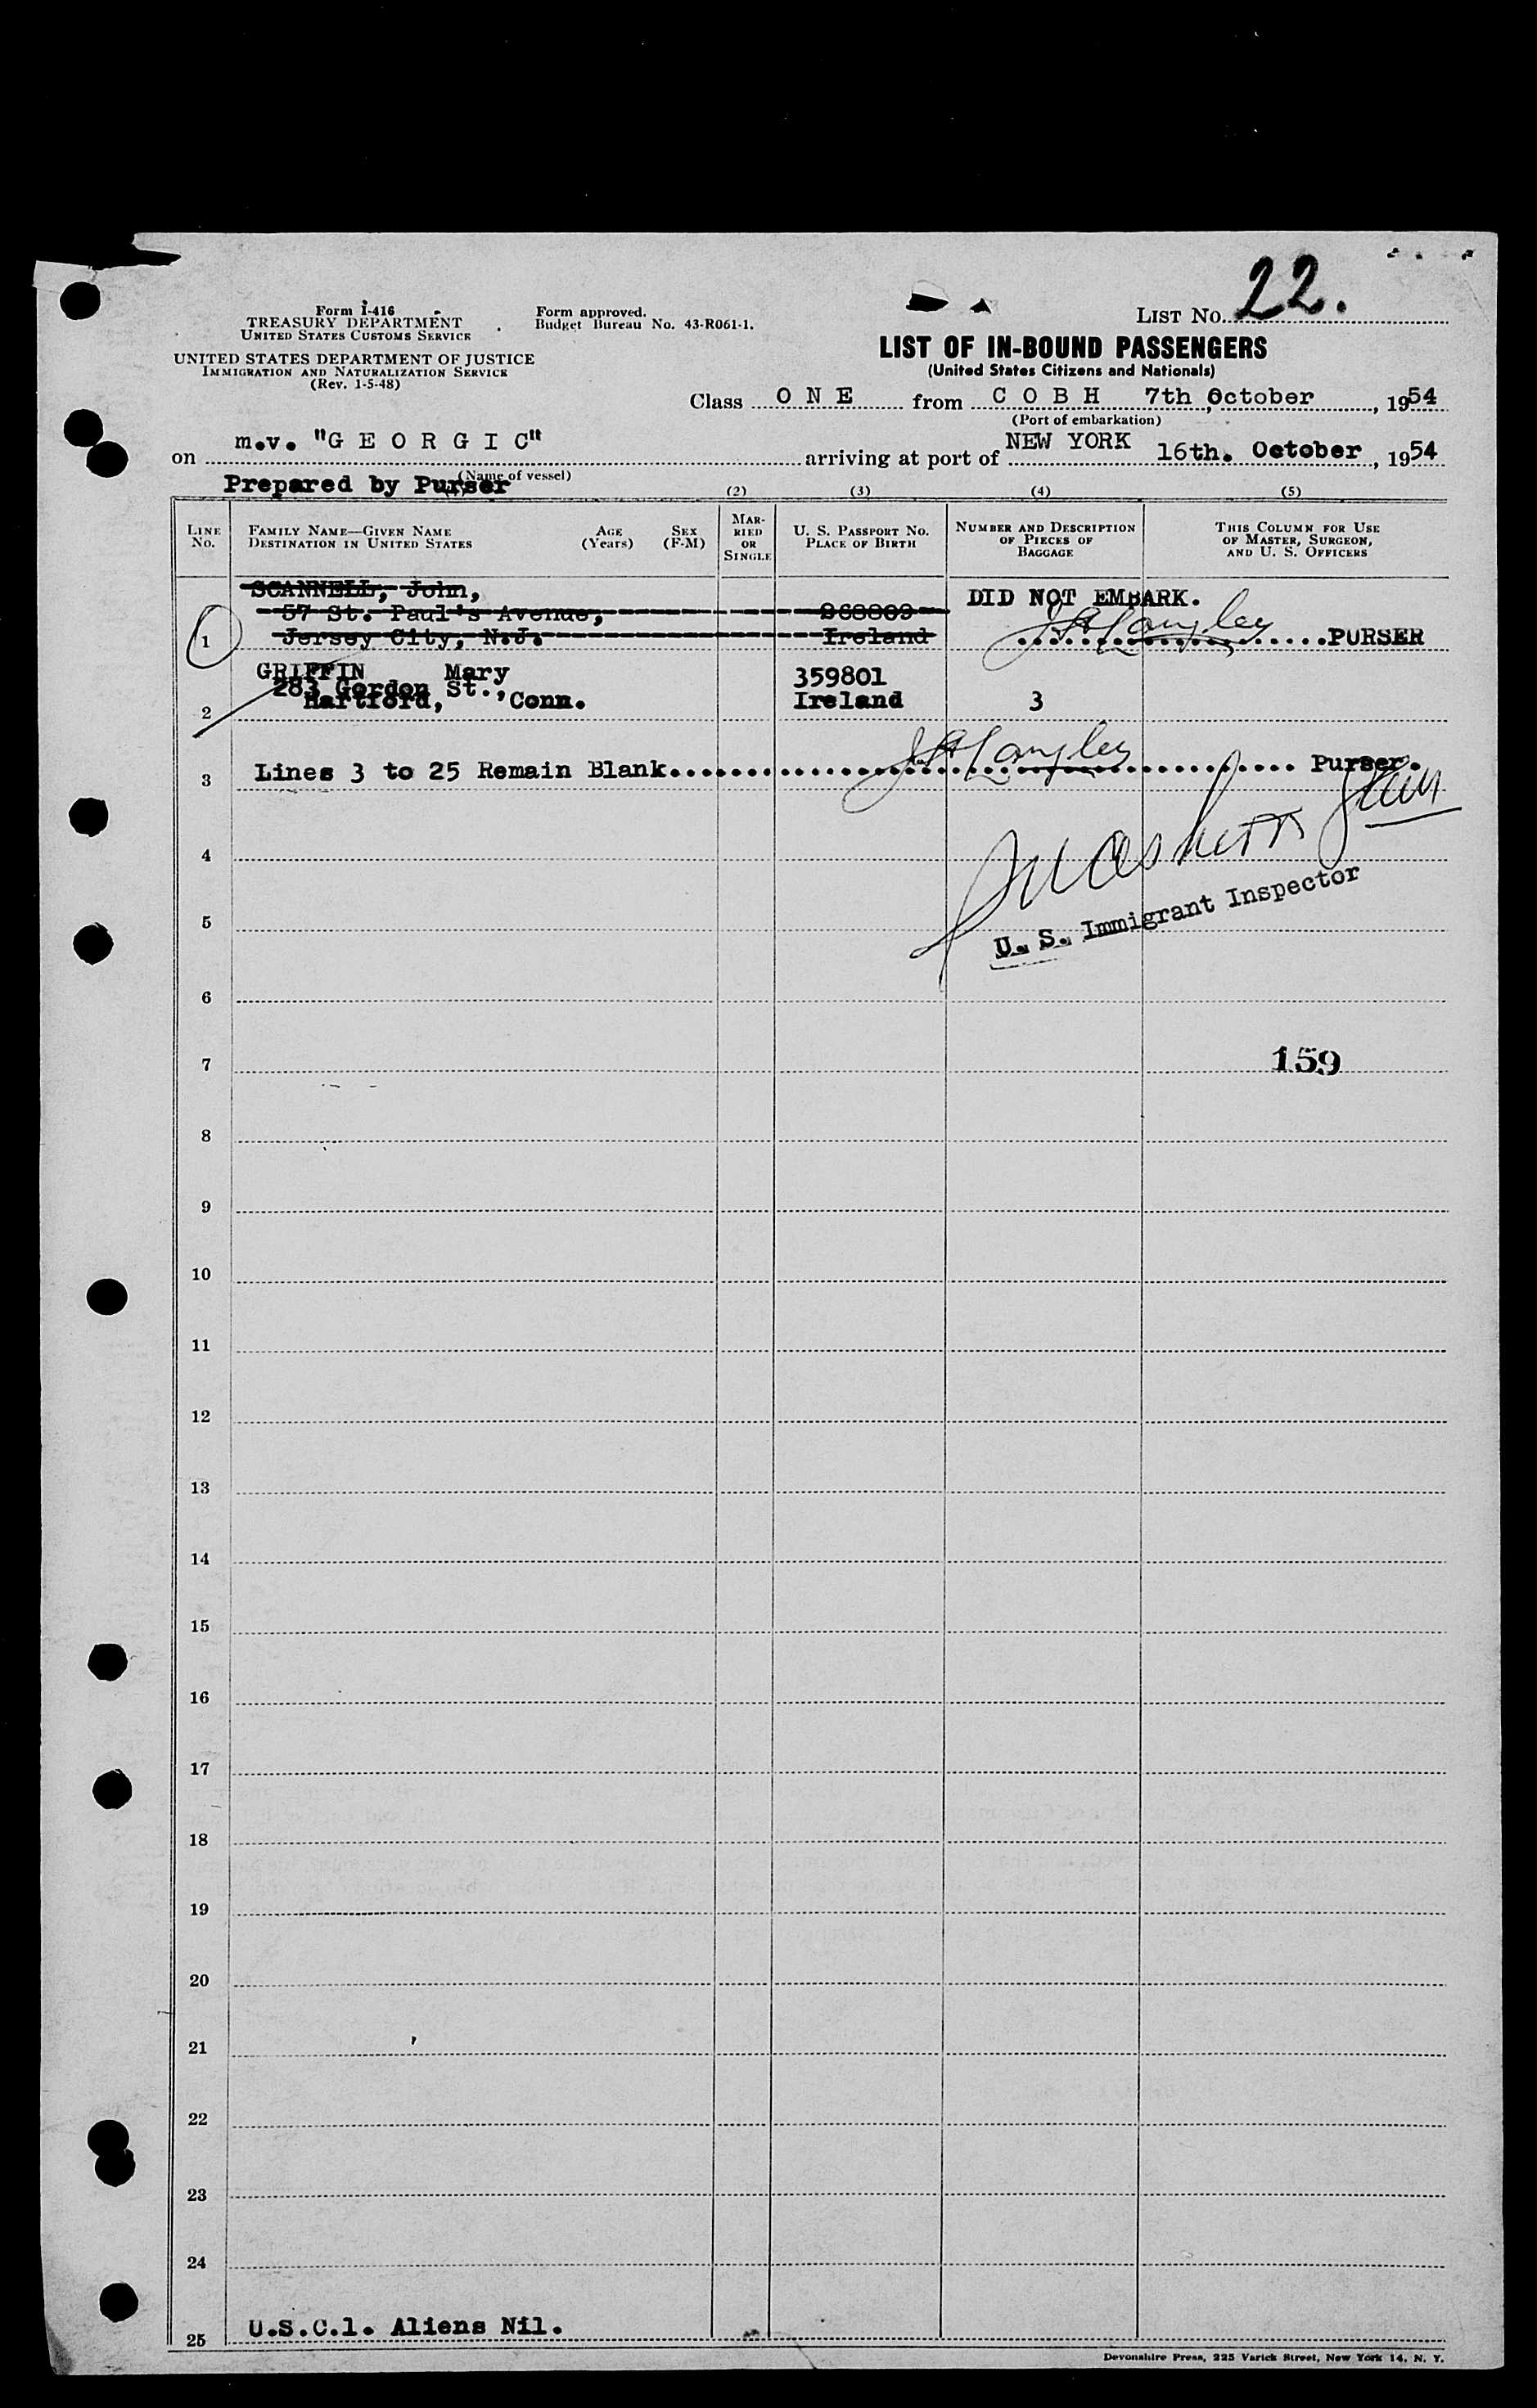 22.
Form I-416
TREASURY DEPARTMENT
UNITED STATES CUSTOMS SERVICE
Form approved.
Budget Bureau No. 43-R061-1.
LIST NO.
UNITED STATES DEPARTMENT OF JUSTICE
IMMIGRATION AND NATURALIZATION SERVICE
(Rev. 1-5-48)
LIST OF IN-BOUND PASSENGERS
(United States Citizens and Nationals)
Class O N E from C O B H 7th October, 1954
(Port of embarkation)
on m.v. "G E O R G I C" arriving at port of NEW YORK 16th. October, 1954
(Name of vessel)
Prepared by Purser
(2) (3) (4) (5)
LINE NO. FAMILY NAME—GIVEN NAME DESTINATION IN UNITED STATES AGE (Years) SEX (F-M) MARRIED OR SINGLE U. S. PASSPORT NO. PLACE OF BIRTH NUMBER AND DESCRIPTION OF PIECES OF BAGGAGE THIS COLUMN FOR USE OF MASTER, SURGEON, AND U. S. OFFICERS
SCANNELL, John,
57 St. Paul's Avenue, DID NOT EMBARK.
1 Jersey City, N.J. Ireland J H Langley PURSER
GRIFFIN Mary 359801
283 Gordon St.,
2 Hartford, Conn. Ireland 3
3 Lines 3 to 25 Remain Blank J H Langley Purser.
4
5 U. S. Immigrant Inspector
6
7 159
8
9
10
11
12
13
14
15
16
17
18
19
20
21
22
23
24
25 U.S.C.1. Aliens Nil.
Devonshire Press, 225 Varick Street, New York 14, N. Y.